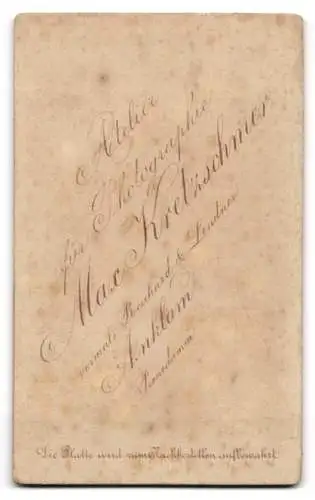 Atelier
für Photographie
Max Kretzschmer
vormals Reinhard & Lindner
Anklam
Peendamm
Die Platte wird zum Nachbestellen aufbewahrt.